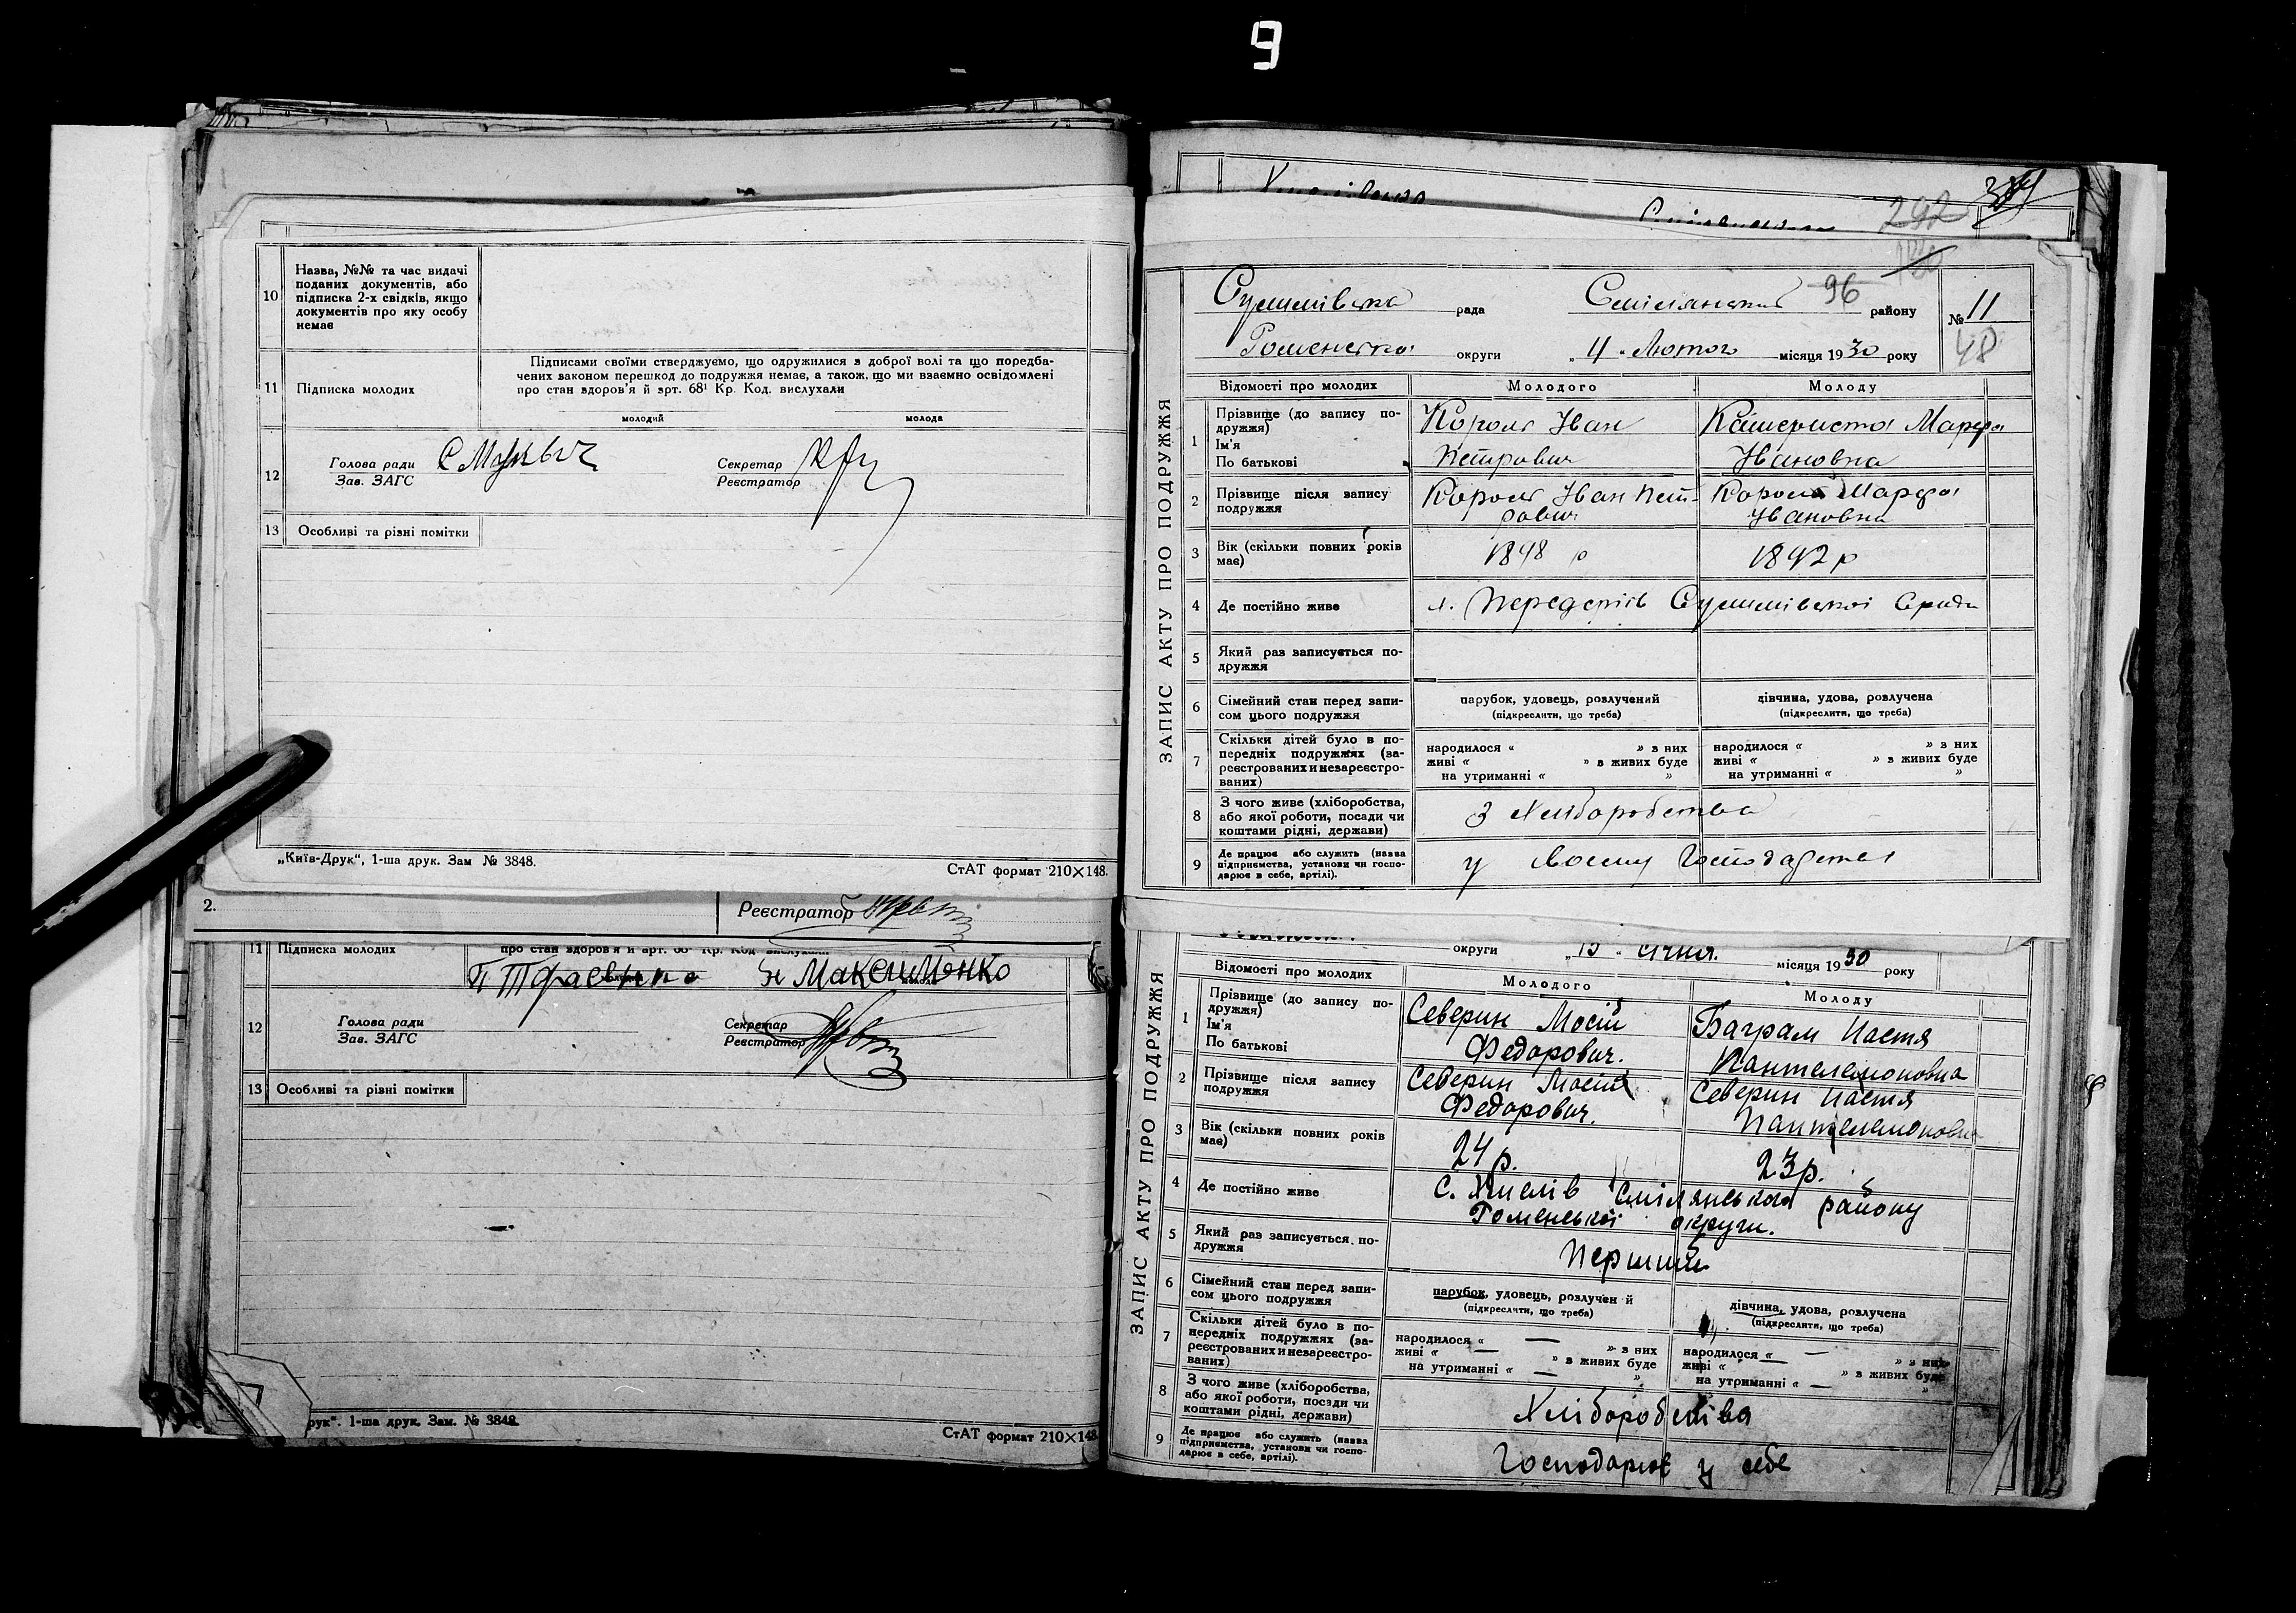 9
10
Назва, №№ та час видачі
поданих документів, або
підписка 2-х свідків, якщо
документів про яку особу
немає
11
Підписка молодих
Підписами своїми стверджуємо, що одружилися з доброї волі та що поредба-
чених законом перешкод до подружжя немає, а також, що ми взаємно освідомлені
про стан здоров'я й арт. 68¹ Кр. Код. вислухали
молодий
молода
12
Голова ради
Зав. ЗАГС
Секретар
Реєстратор
13
Особливі та різні помітки
„Київ-Друк“, 1-ша друк. Зам № 3848.
СтАТ формат 210×148.
2.
Реєстратор
11
Підписка молодих
про стан здоров'я й арт. 68¹ Кр. Код. вислухали
Н Максименко
12
Голова ради
Зав. ЗАГС
Секретар
Реєстратор
13
Особливі та різні помітки
рук“. 1-ша друк. Зам. № 3848
СтАТ формат 210×148
292
ЗАПИС АКТУ ПРО ПОДРУЖЖЯ
рада
Смілянський
96
району
№ 11
48
Роменська округи
„ 4 “ Лютого місяця 1930 року
Відомості про молодих
Молодого
Молоду
1
Прізвище (до запису по-
дружжя)
Ім'я
По батькові
Король Іван
Петрович
Марфа
Івановна
2
Прізвище після запису
подружжя
Король Іван Пет-
рович
Король Марфа
Івановна
3
Вік (скільки повних років
має)
1898 р
1892 р
4
Де постійно живе
5
Який раз записується по-
дружжя
6
Сімейний стан перед запи-
сом цього подружжя
парубок, удовець, розлучений
(підкреслити, що треба)
дівчина, удова, розлучена
(підкреслити, що треба)
7
Скільки дітей було в по-
передніх подружжях (за-
реєстрованих и незареєстро-
ваних)
народилося “ ” з них
живі “ ” в живих буде
на утриманні “ ”
народилося “ ” з них
живі “ ” в живих буде
на утриманні “ ”
8
З чого живе (хліборобства,
або якої роботи, посади чи
коштами рідні, держави)
З хліборобства
9
Де працює або служить (назва
підприємства, установи чи госпо-
дарює в себе, артілі).
у своєму
ЗАПИС АКТУ ПРО ПОДРУЖЖЯ
округи
„ 15 “ січня. місяця 1930 року
Відомості про молодих
Молодого
Молоду
1
Прізвище (до запису по-
дружжя)
Ім'я
По батькові
Северин Мосій
Федорович.
Баграм Настя
Пантелемоновна
2
Прізвище після запису
подружжя
Северин Мосій
Федорович.
Северин Настя
Пантелемоновна
3
Вік (скільки повних років
має)
24 р.
23 р.
4
Де постійно живе
с. Хмелів Смілянського району
Роменської округи.
5
Який раз записується по-
дружжя
Перший
6
Сімейний стан перед запи-
сом цього подружжя
парубок, удовець, розлучен й
(підкреслити, що треба)
дівчина, удова, розлучена
(підкреслити, що треба)
7
Скільки дітей було в по-
передніх подружжях (за-
реєстрованих и незареєстро-
ваних)
народилося “ — ” з них
живі “ — ” в живих буде
на утриманні “ — ”
народилося “ — ” з них
живі “ — ” в живих буде
на утриманні “ — ”
8
З чого живе (хліборобства,
або якої роботи, посади чи
коштами рідні, держави)
Хліборобства
9
Де працює або служить (назва
підприємства, установи чи госпо-
дарює в себе, артілі).
Господарює у себе